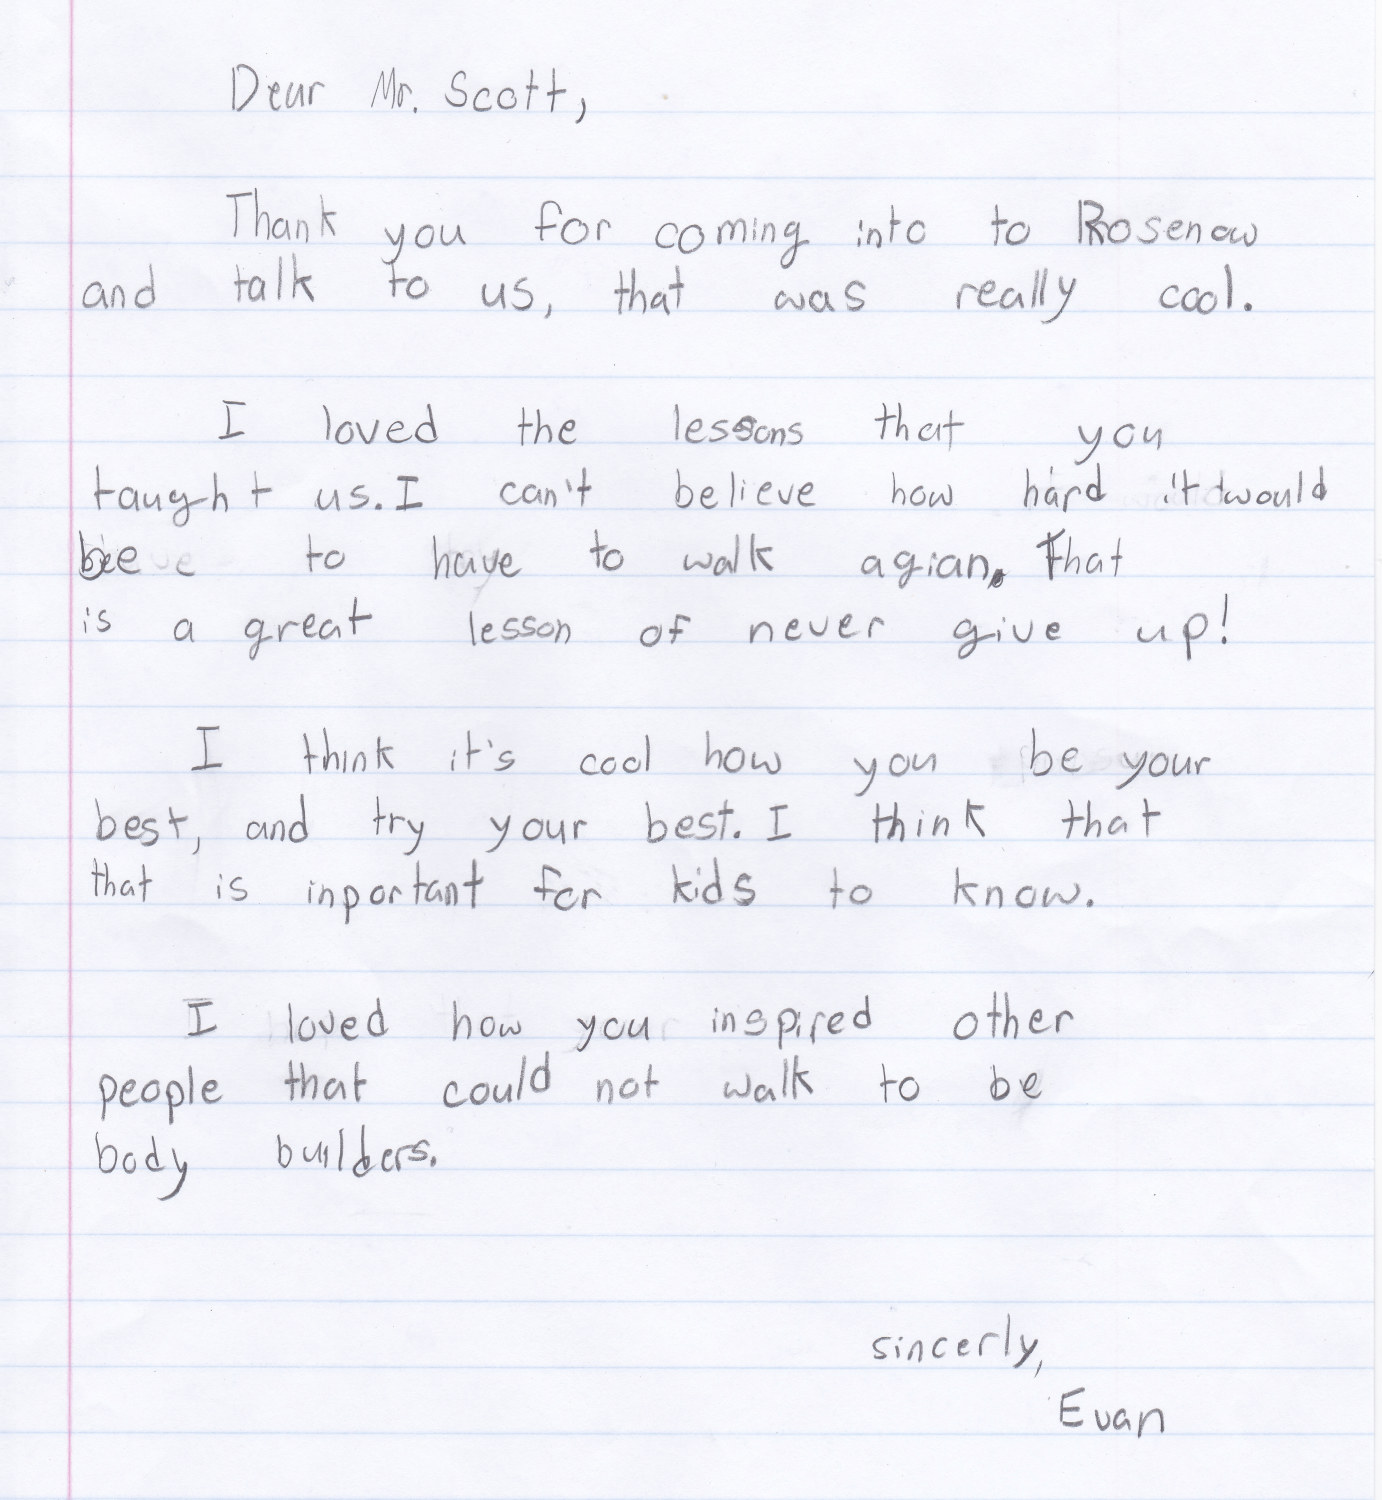 Dear Mr. Scott,
Thank you for coming into to Rosenow
and talk to us, that was really cool.
I loved the lessons that you
taught us. I can't believe how hard it would
be to have to walk agian. That
is a great lesson of never give up!
I think it's cool how you be your
best, and try your best. I think that
that is inportant for kids to know.
I loved how you inspired other
people that could not walk to be
body builders.
sincerly,
Evan